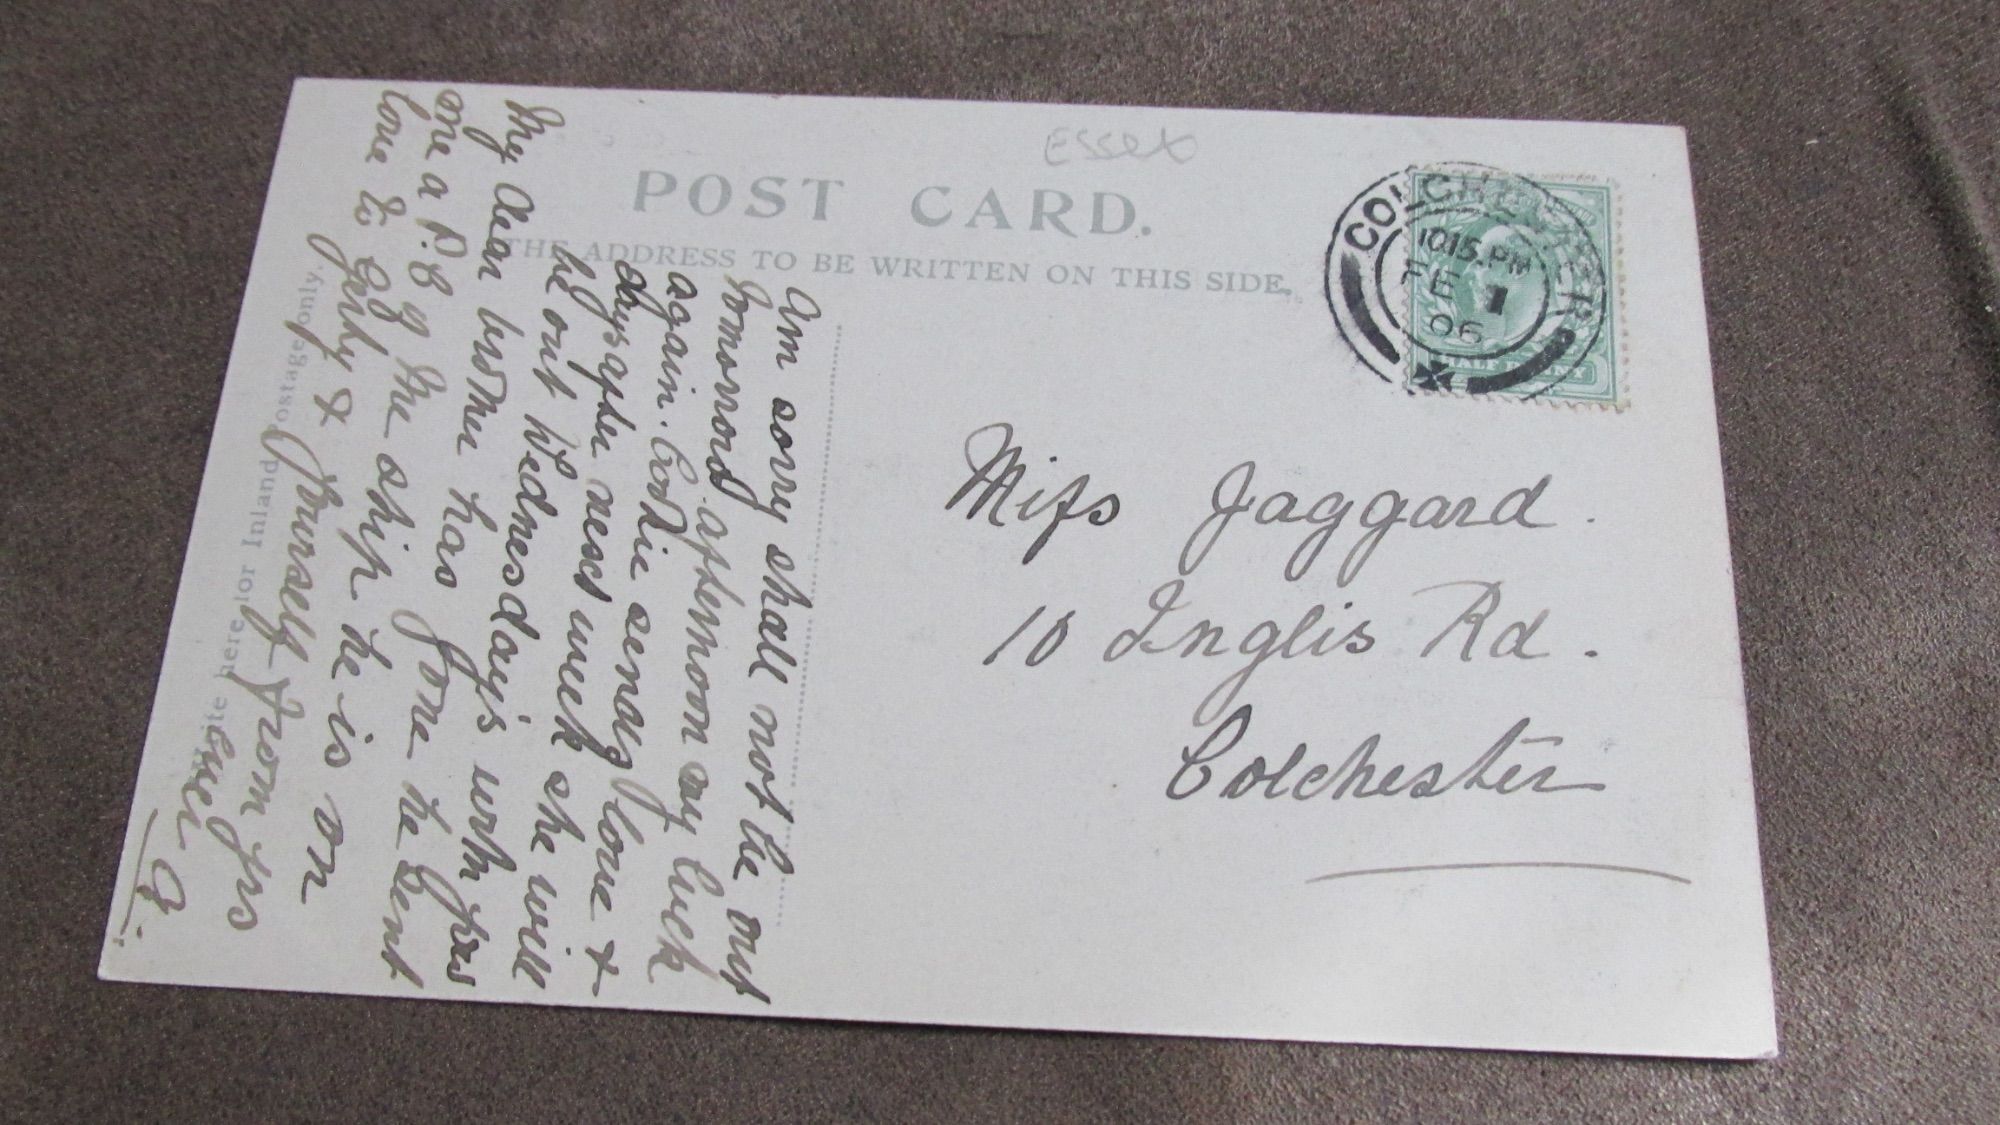 Essex
POST CARD.
THE ADDRESS TO BE WRITTEN ON THIS SIDE.
Write here for Inland Postage only.
COLCHESTER
10.15.PM
FE 1
06
HALF PENNY
Miss Jaggard.
10 Inglis Rd.
Colchester
Am sorry shall not be out
tomorrow afternoon my luck
again. Cookie sends love &
days after next week she will
be out Wednesday's with you
My Dear brother has gone he sent
me a P.C of the ship he is on
love to Gerty & Yourself From yrs
G.